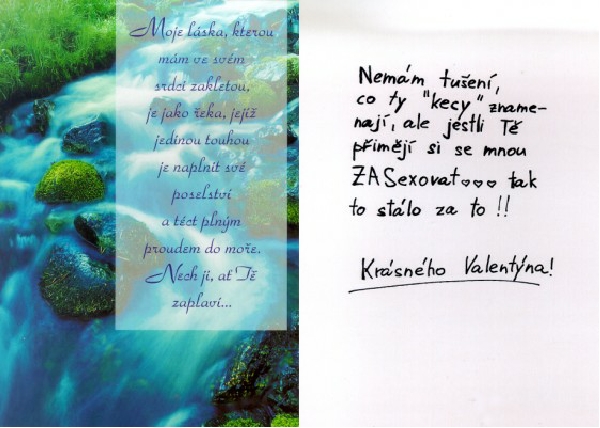 Moje láska, kterou
mám ve svém
srdci zakletou,
je jako řeka, jejíž
jedinou touhou
je naplnit své
poselství
a téct plným
proudem do moře.
Nech ji, ať Tě
zaplaví...
Nemám tušení,
co ty "kecy" zname-
nají, ale jestli Tě
přimějí si se mnou
ZASexovat♡♡♡ tak
to stálo za to !!
Krásného Valentýna!